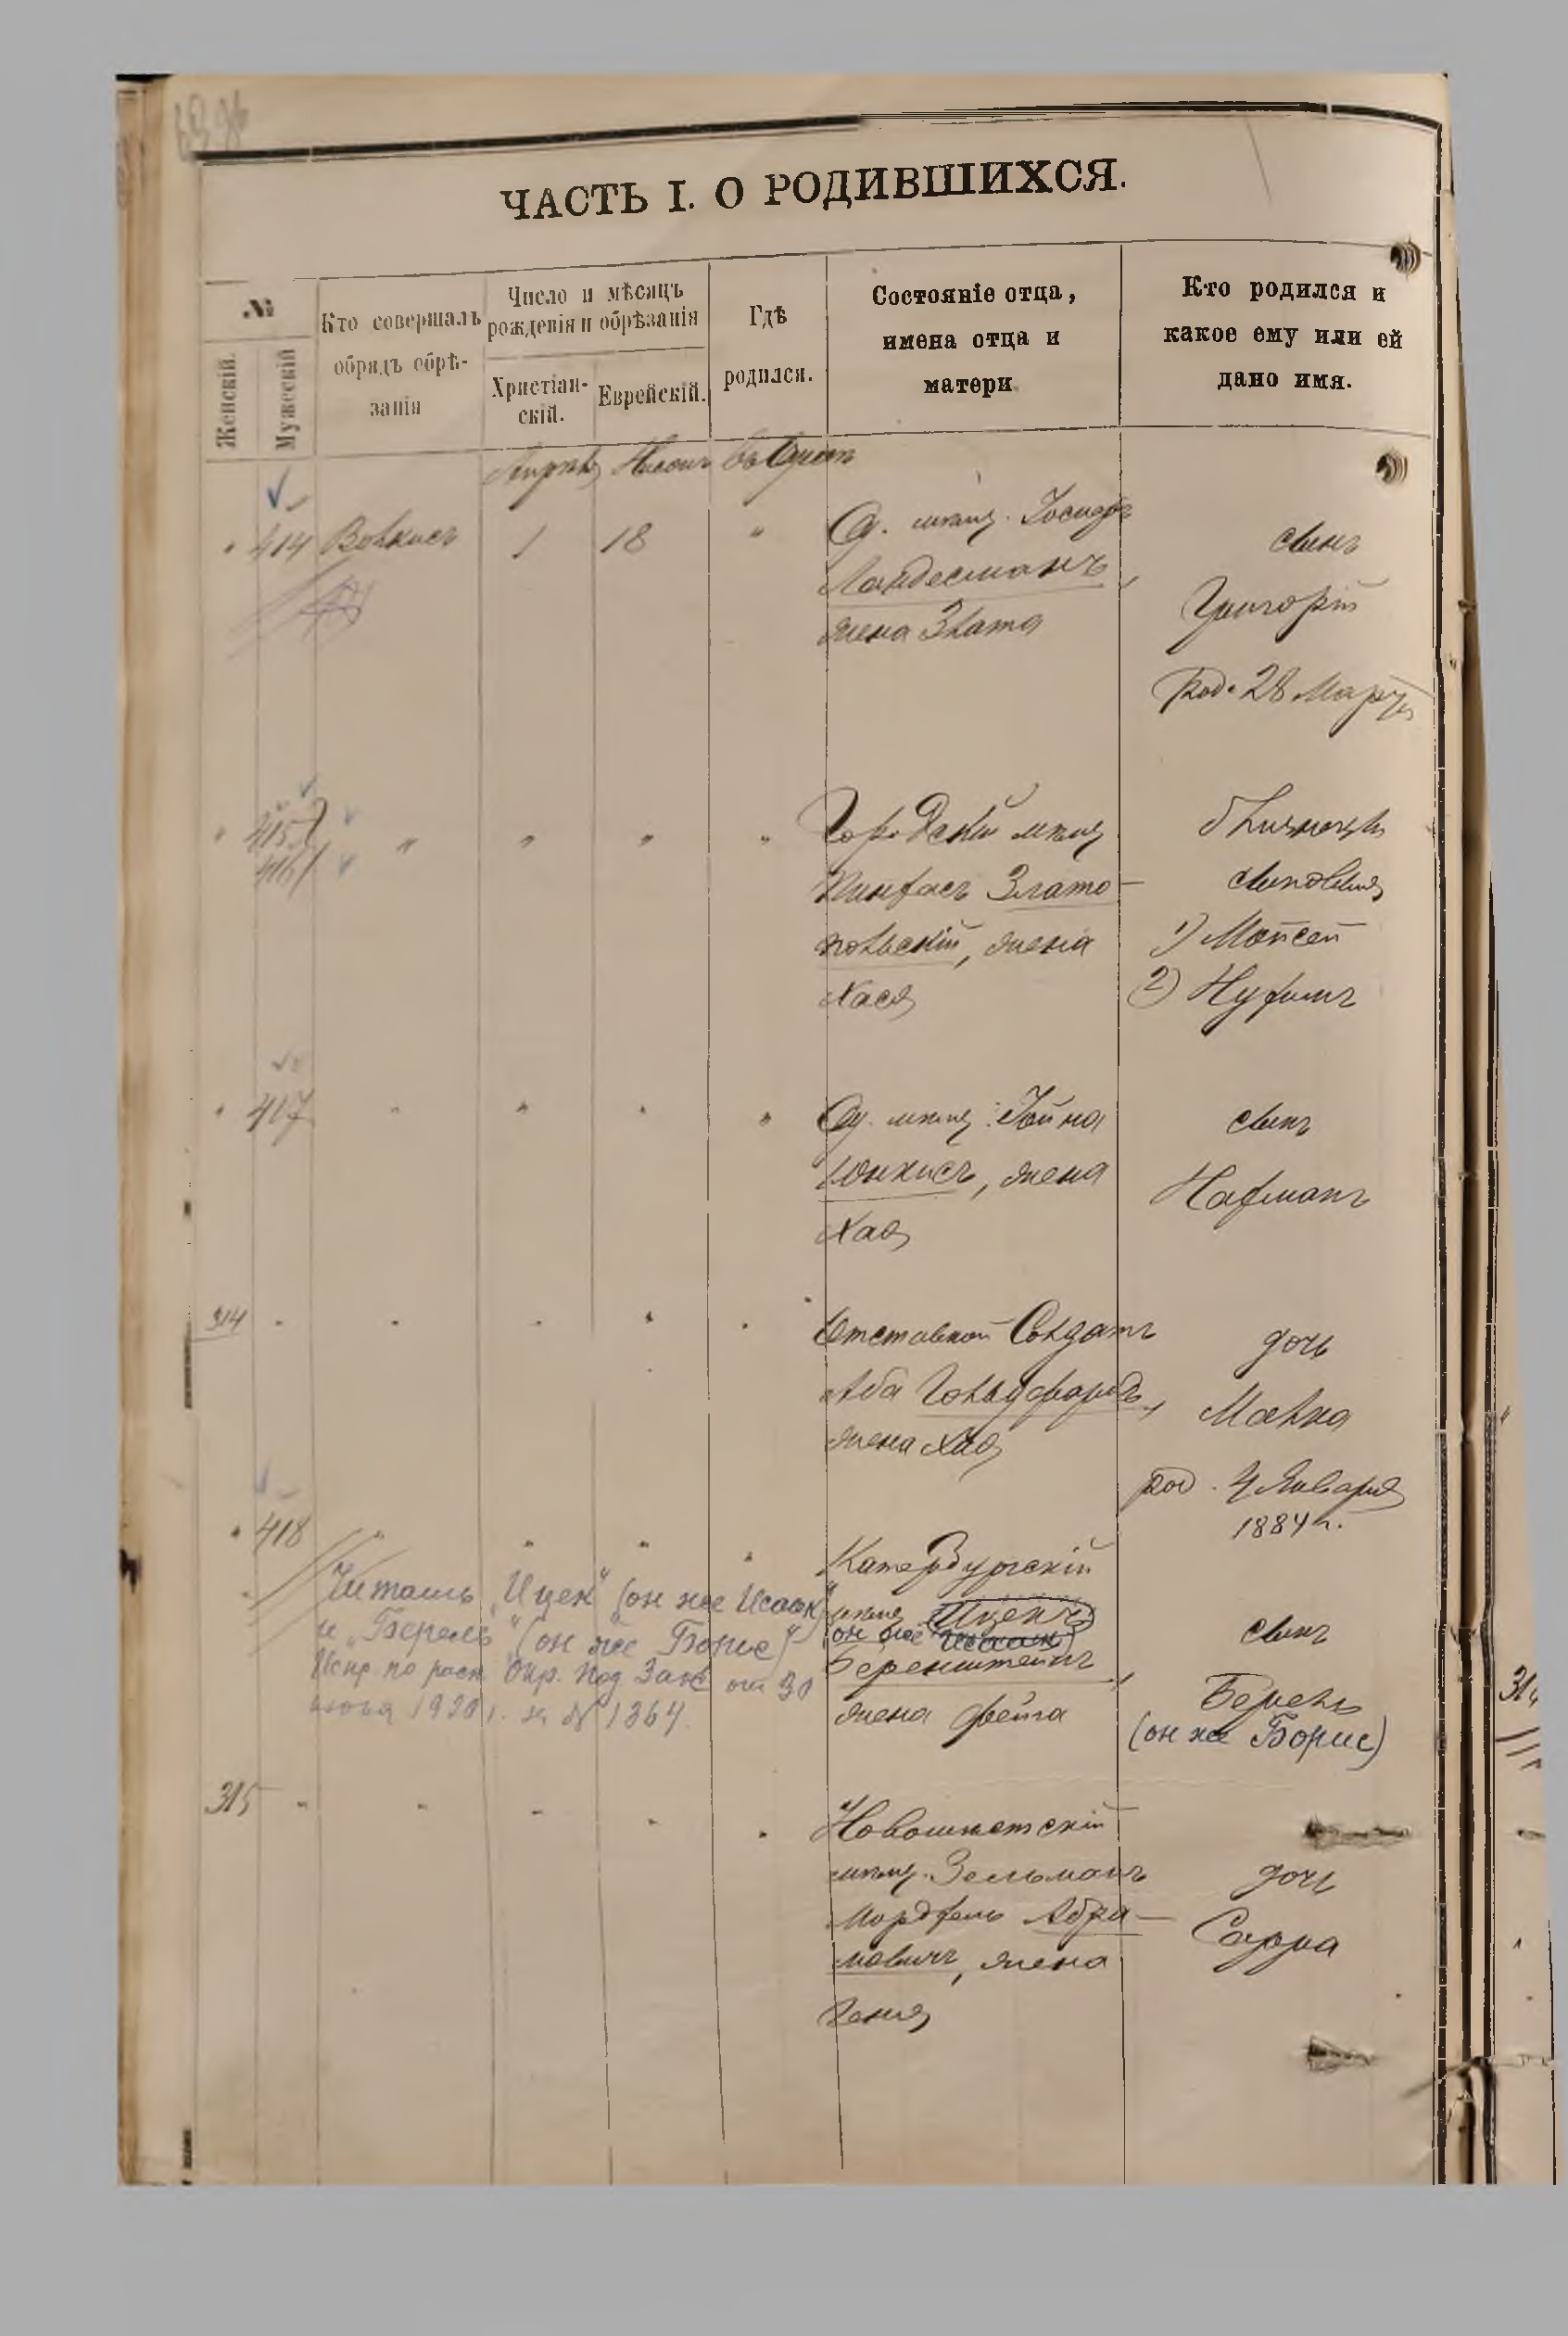 ЧАСТЬ I. О РОДИВШИХСЯ.
№
Женскій.
Мужескій
Кто совершалъ
обрядъ обрѣ-
занія
Число и мѣсяцъ
рожденія и обрѣзанія
Христіан-
скій.
Еврейскій.
Гдѣ
родился.
Состояніе отца,
имена отца и
матери
Кто родился и
какое ему или ей
дано имя.
Апрѣль Нисонъ
" 414 1 18 "
Од. мѣщ.
Ландесманъ,
жена Злата
сынъ
Григорій
Род. 28 Марта
" 415
416 " " " "
Городскій мѣщ
Пинхасъ Злато-
польскій, жена
Хася
близнецы
сыновья
1) Мойсей
2) Нухимъ
" 417 " " " "
Од. мѣщ.
жена
Хая
сынъ
Нахманъ
314 " " " " "
Отставной Солдатъ
Аба Гольдфарбъ,
жена Хая
дочь
Малка
род. 4 Января
1884 г.
" 418 " " " "
Читать "Ицек" (он же Исаак)
и "Берель" (он же Борис)
Испр. по расп. Окр. Под Загс от 30
июня 1930 г. за № 1364.
Катербургскій
мѣщ Ицекъ
(он же Исаак)
Беренштейнъ,
жена Фейга
сынъ
Берель
(он же Борис)
315 " " " " "
мѣщ. Зельманъ
Мордхель Абра-
мовичъ, жена
Геня
дочь
Сарра